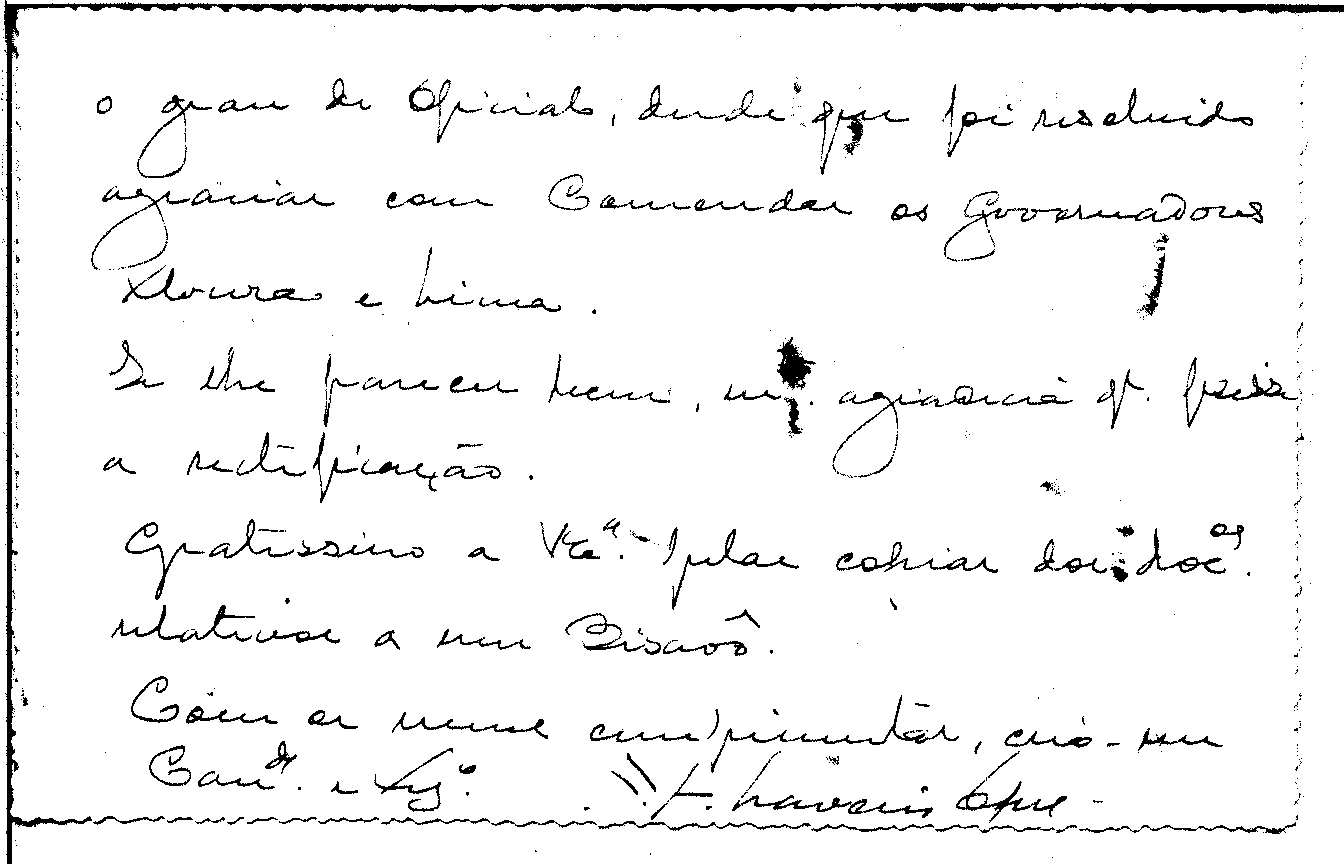 o grau de Oficial, desde que foi resolvido
agraciar com Comendas os Governadores
Moura e Lima.
Se lhe parecer bem, m. agradecia q.
a rectificação.
Gratissimo a V. Ex.ª pelas copias dos doc.os
relativos a meu Bisavô.
Com os meus cumprimentos, creio-me
Cam.da e